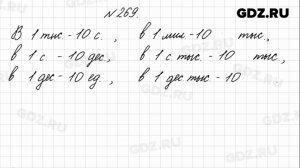 GDZ.RU
№ 269.
В 1 тыс. - 10 с. , в 1 мил - 10 тыс,
в 1 с. - 10 дес, в 1 с тыс. - 10 тыс,
в 1 дес - 10 ед, в 1 дес тыс - 10 .